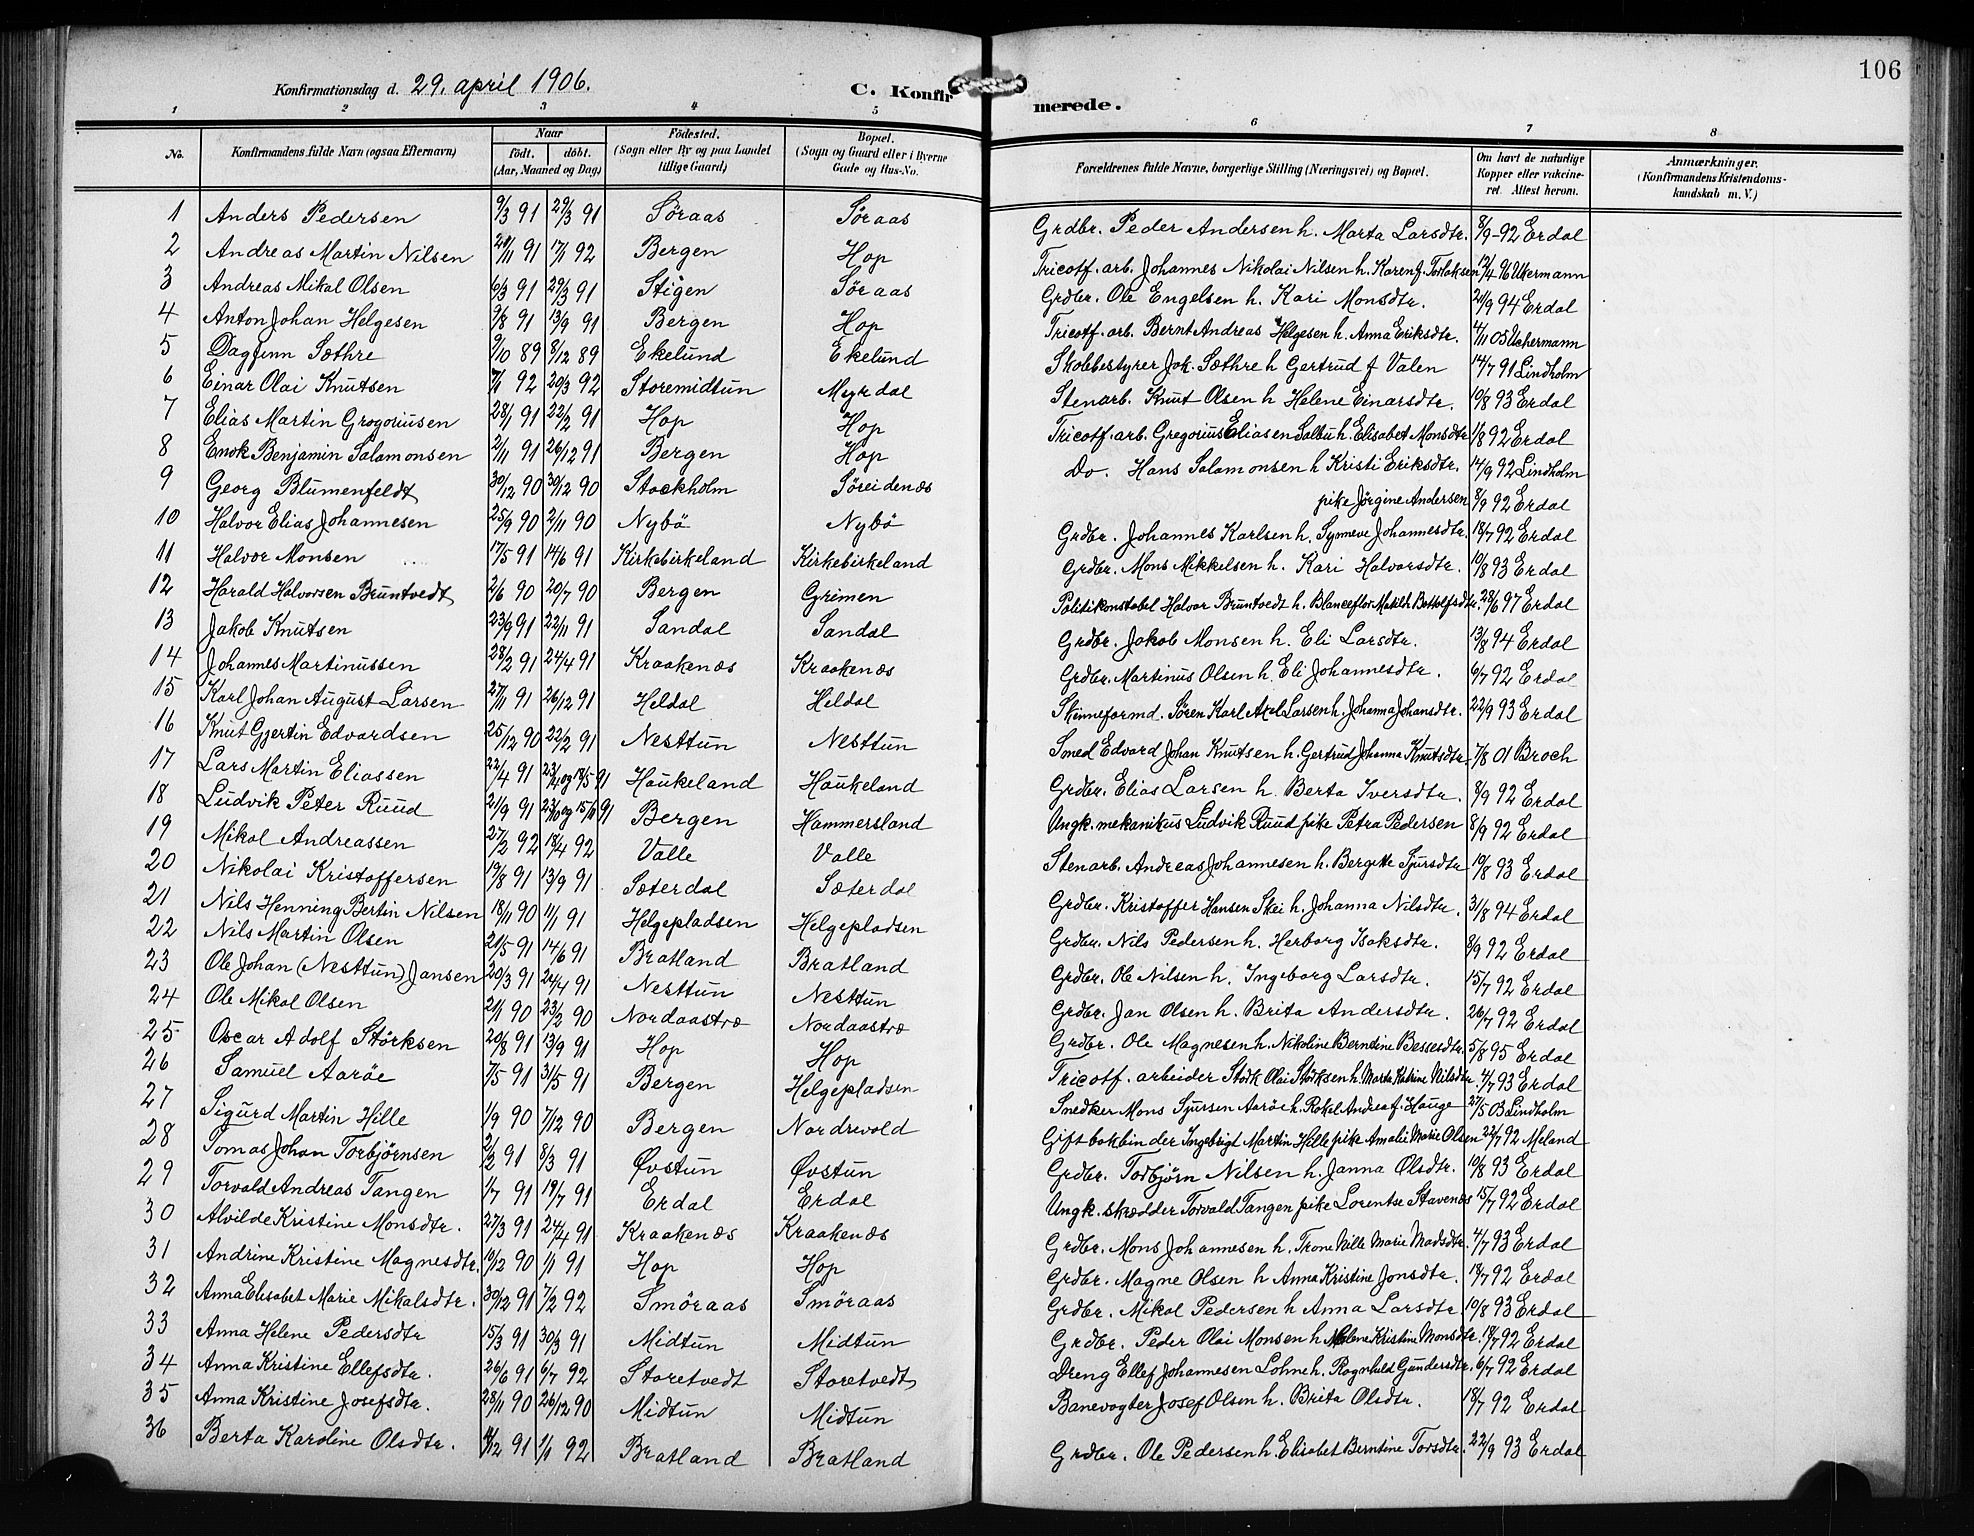 106
Konfirmationsdag d. 29. april 1906.
C. Konfirmerede.
1 2 3 4 5 6 7 8
No. | Konfirmandens fulde Navn (ogsaa Efternavn) | Naar födt. döbt. (Aar, Maaned og Dag) | Födested. (Sogn eller By og paa Landet tillige Gaard) | Bopæl. (Sogn og Gaard eller i Byerne Gade og Hus-No. | Forældrenes fulde Navne, borgerlige Stilling (Næringsvei) og Bopæl. | Om havt de naturlige Kopper eller vakcineret. Attest herom. | Anmærkninger. (Konfirmandens Kristendomskundskab m. V.)
1 Anders Pedersen 9/3 91 29/3 91 Søraas Søraas Grdbr. Peder Andersen h. Marta Larsdtr. 8/9-92 Erdal
2 Andreas Martin Nilsen 20/11 91 17/1 92 Bergen Hop Tricotf. arb. Johannes Nikolai Nilsen h. Karen f. Torlaksen 12/4 96 Ukermann
3 Andreas Mikal Olsen 6/3 91 29/3 91 Stigen Søraas Grdbr. Ole Engelsen h. Kari Monsdtr. 20/9 94 Erdal
4 Anton Johan Helgesen 9/8 91 13/9 91 Bergen Hop Tricotf. arb. Bernt Andreas Helgesen h. Anna Eriksdtr. 4/11 05 Uchermann
5 Dagfinn Sæthre 9/10 89 8/12 89 Ekelund Ekelund Skolebestyrer Joh. Sæthre h Gertrud f Valen 14/7 91 Lindholm
6 Einar Olai Knutsen 7/1 92 20/3 92 Storemidtun Myrdal Stenarb. Knut Olsen h Helene Einarsdtr. 10/8 93 Erdal
7 Elias Martin Grogoriusen 28/1 91 22/2 91 Hop Hop Tricotf. arb. Gregorius Eliasen Saltu h. Elisabet Monsdtr 1/8 92 Erdal
8 Enok Benjamin Salamonsen 2/11 91 26/12 91 Bergen Hop Do. Hans Salamonsen h Kristi Eriksdtr. 14/9 92 Lindholm
9 Georg Blumenfeldt 30/12 90 30/12 90 Stockholm Søreidenæs pike Jørgine Andersen 8/9 92 Erdal
10 Halvor Elias Johannesen 25/9 90 2/11 90 Nybö Nybö Grdbr. Johannes Karlsen h. Synneve Johannesdtr. 18/7 92 Erdal
11 Halvor Monsen 17/5 91 14/6 91 Kirkebirkeland Kirkebirkeland Grdbr. Mons Mikkelsen h. Kari Halvorsdtr. 10/8 93 Erdal
12 Harald Halvorsen Bruntvedt 2/6 90 20/7 90 Bergen Grimen Politikonstabel Halvor Bruntvedt h. Blanceflor Matilde Bottolfsdtr. 28/6 97 Erdal
13 Jakob Knutsen 23/9 91 22/11 91 Sandal Sandal Grdbr. Jakob Monsen h. Eli Larsdtr. 13/8 94 Erdal
14 Johannes Martinussen 28/2 91 24/4 91 Kraakenæs Kraakenæs Grdbr. Martinus Olsen h. Eli Johannesdtr. 6/7 92 Erdal
15 Karl Johan August Larsen 27/11 91 26/12 91 Heldal Heldal Skinneformd. Sören Karl Axel Larsen h. Johanna Johansdtr. 22/9 93 Erdal
16 Knut Gjertin Edvardsen 25/12 90 22/2 91 Nesttun Nesttun Smed Edvard Johan Knutsen h. Gertrud Johanna Knutsdtr 7/8 01 Broch
17 Lars Martin Eliassen 22/4 91 23/4 og 18/5 91 Haukeland Haukeland Grdbr. Elias Larsen h. Berta Iversdtr. 8/9 92 Erdal
18 Ludvik Peter Ruud 21/9 91 23/10 og 15/11 91 Bergen Hammersland Ungk. mekanikus Ludvik Ruud pike Petra Pedersen 8/9 92 Erdal
19 Mikal Andreassen 27/2 92 18/4 92 Valle Valle Stenarb. Andreas Johannesen h. Bergitte Sjursdtr 19/8 93 Erdal
20 Nikolai Kristoffersen 19/8 91 13/9 91 Sæterdal Sæterdal Grdbr. Kristoffer Hansen Skei h. Johanna Nilsdtr. 31/8 94 Erdal
21 Nils Henning Bertin Nilsen 18/11 90 1/1 91 Helgepladsen Helgepladsen Grdbr. Nils Pedersen h. Herborg Isaksdtr. 8/9 92 Erdal
22 Nils Martin Olsen 21/5 91 14/6 91 Bratland Bratland Grdbr. Ole Nilsen h. Ingeborg Larsdtr. 15/7 92 Erdal
23 Ole Johan (Nesttun) Jansen 20/3 91 24/4 91 Nesttun Nesttun Grdbr. Jan Olsen h. Brita Andersdtr. 26/7 92 Erdal
24 Ole Mikal Olsen 21/1 90 23/2 90 Nordaastræ Nordaastræ Grdbr. Ole Magnesen h. Nikoline Berntine Bessesdtr. 5/8 95 Erdal
25 Oscar Adolf Störksen 20/8 91 13/9 91 Hop Hop Tricotf. arbeider Störk Olai Störksen h. Marta Katrine Nilsdtr. 4/7 93 Erdal
26 Samuel Aaröe 7/5 91 31/5 91 Bergen Helgepladsen Snedker Mons Sjursen Aaröe h. Rakel Andrea f. Hauge 27/5 03 Lindholm
27 Sigurd Martin Hille 1/9 90 7/12 90 Bergen Nordrevold Gift bokbinder Ingebrigt Martin Hille pike Amalie Marie Olsen 22/7 92 Meland
28 Tomas Johan Torbjörnsen 2/2 91 8/3 91 Øvstun Øvstun Grdbr. Torbjørn Nilsen h. Janna Olsdtr. 10/8 93 Erdal
29 Torvald Andreas Tangen 1/7 91 19/7 91 Erdal Erdal Ungk. skrædder Torvald Tangen pike Lorentse Stavenæs 15/7 92 Erdal
30 Alvilde Kristine Monsdtr. 27/3 91 24/4 91 Kraakenæs Kraakenæs Grdbr. Mons Johannesen h. Trone Nille Marie Madsdtr. 4/7 93 Erdal
31 Andrine Kristine Magnesdtr. 10/12 90 1/1 91 Hop Hop Grdbr. Magne Olsen h Anna Kristine Jonsdtr. 18/7 92 Erdal
32 Anna Elisabet Marie Mikalsdtr. 30/12 91 7/2 92 Smöraas Smöraas Grdbr. Mikal Pedersen h Anna Larsdtr 10/8 93 Erdal
33 Anna Helene Pedersdtr 15/3 91 30/3 91 Midtun Midtun Grdbr. Peder Olai Monsen h. Malene Kristine Monsdtr. 18/7 92 Erdal
34 Anna Kristine Ellefsdtr. 26/6 91 6/7 92 Storetvedt Storetvedt Dreng Ellef Johannesen Lohne h. Ragnhild Gundersdtr. 6/7 92 Erdal
35 Anna Kristine Josefsdtr. 28/11 90 26/12 90 Midtun Midtun Banevogter Josef Olsen h. Brita Olsdtr. 18/7 92 Erdal
36 Berta Karoline Olsdtr. /12 91 1/1 92 Bratland Bratland Grdbr. Ole Pedersen h. Elisabet Berntine Torsdtr. 22/9 93 Erdal